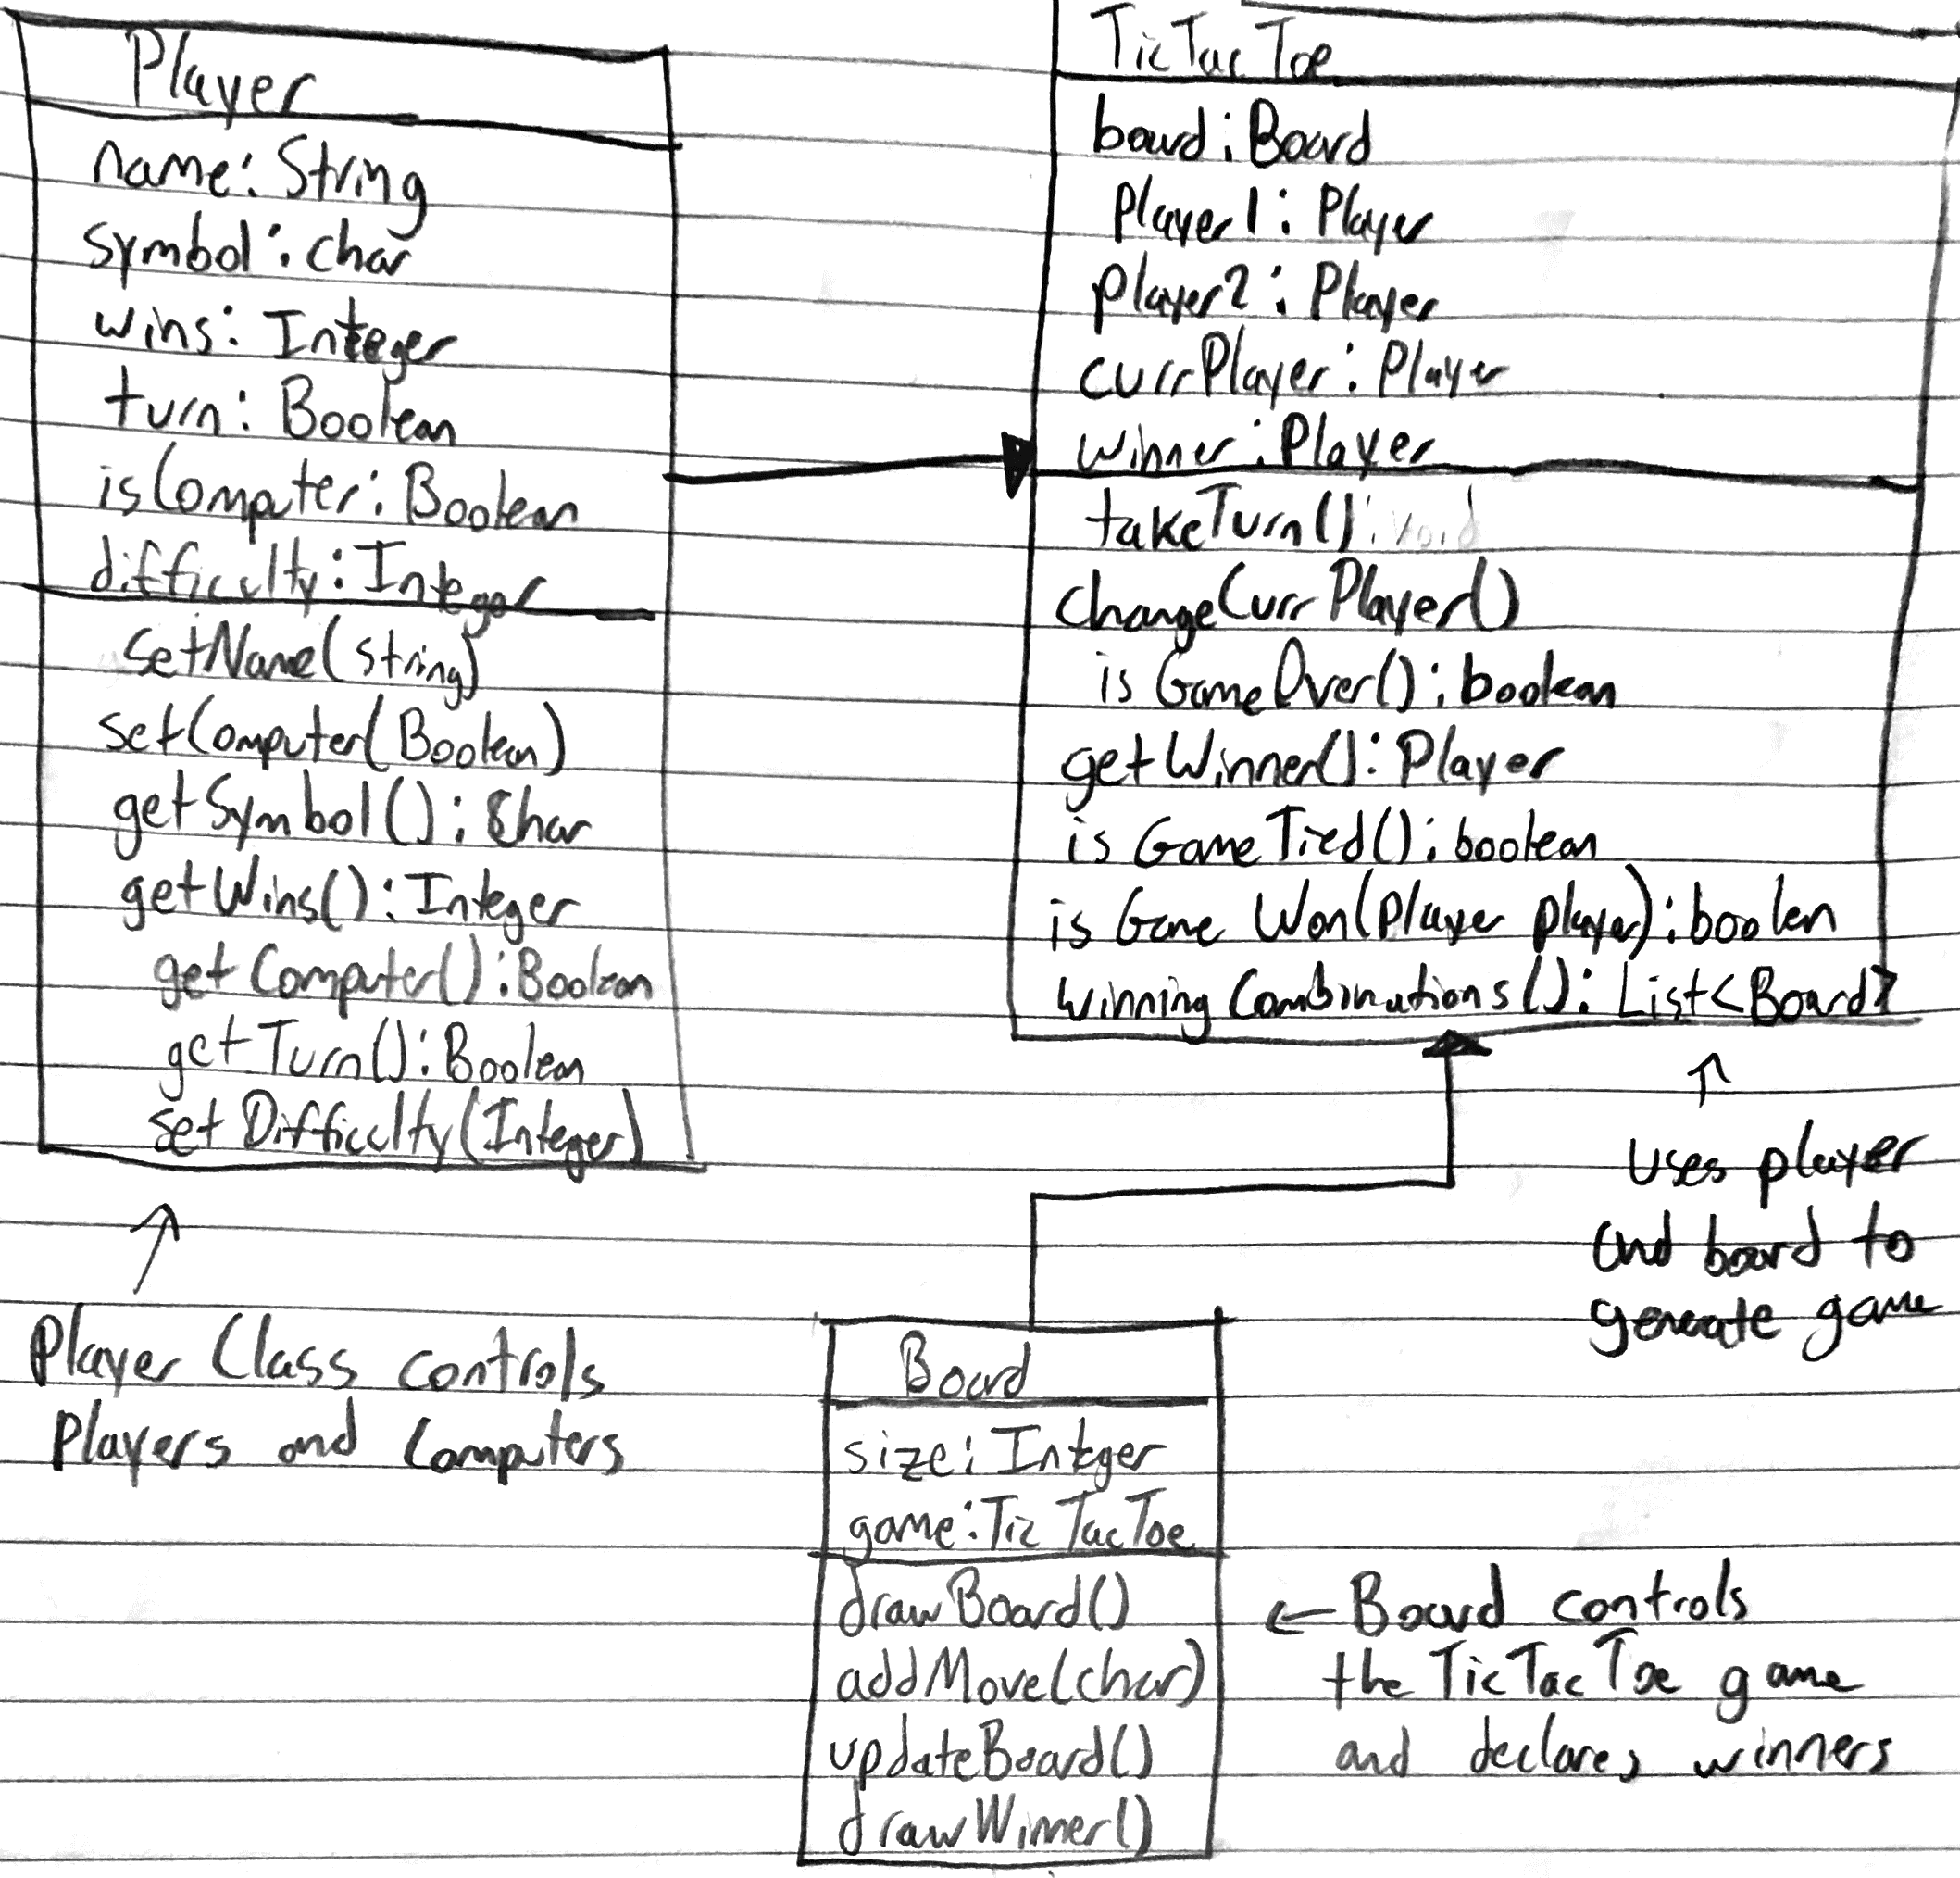 Player
name: String
symbol: char
wins: Integer
turn: Boolean
isComputer: Boolean
difficulty: Integer
setName(string)
setComputer(Boolean)
getSymbol(): Char
getWins(): Integer
getComputer(): Boolean
getTurn(): Boolean
setDifficulty(Integer)
Player Class controls
Players and Computers
TicTacToe
board: Board
Player1: Player
player2: Player
currPlayer: Player
winner: Player
takeTurn(): void
changeCurrPlayer()
isGameOver(): boolean
getWinner(): Player
isGameTied(): boolean
isGameWon(Player player): boolen
winningCombinations(): List<Board>
uses player
and board to
generate game
Board
size: Integer
game: TicTacToe
drawBoard()
addMove(char)
updateBoard()
drawWinner()
Board controls
the TicTacToe game
and declares winners